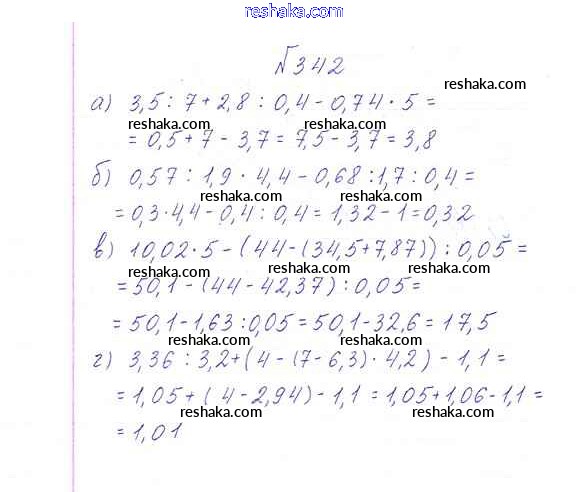 reshaka.com
№342
reshaka.com
а) 3,5 : 7 + 2,8 : 0,4 - 0,74 · 5 =
reshaka.com reshaka.com
= 0,5 + 7 - 3,7 = 7,5 - 3,7 = 3,8
б) 0,57 : 1,9 · 4,4 - 0,68 : 1,7 : 0,4 =
reshaka.com reshaka.com
= 0,3 · 4,4 - 0,4 : 0,4 = 1,32 - 1 = 0,32
в) 10,02 · 5 - (44 - (34,5 + 7,87)) : 0,05 =
reshaka.com reshaka.com
= 50,1 - (44 - 42,37) : 0,05 =
= 50,1 - 1,63 : 0,05 = 50,1 - 32,6 = 17,5
reshaka.com reshaka.com
г) 3,36 : 3,2 + (4 - (7 - 6,3) · 4,2) - 1,1 =
= 1,05 + (4 - 2,94) - 1,1 = 1,05 + 1,06 - 1,1 =
reshaka.com reshaka.com
= 1,01